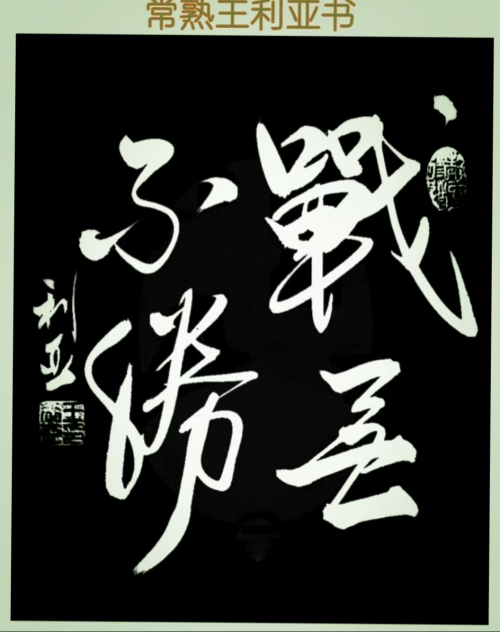 常熟王利亚书
戰無
不勝
利亚